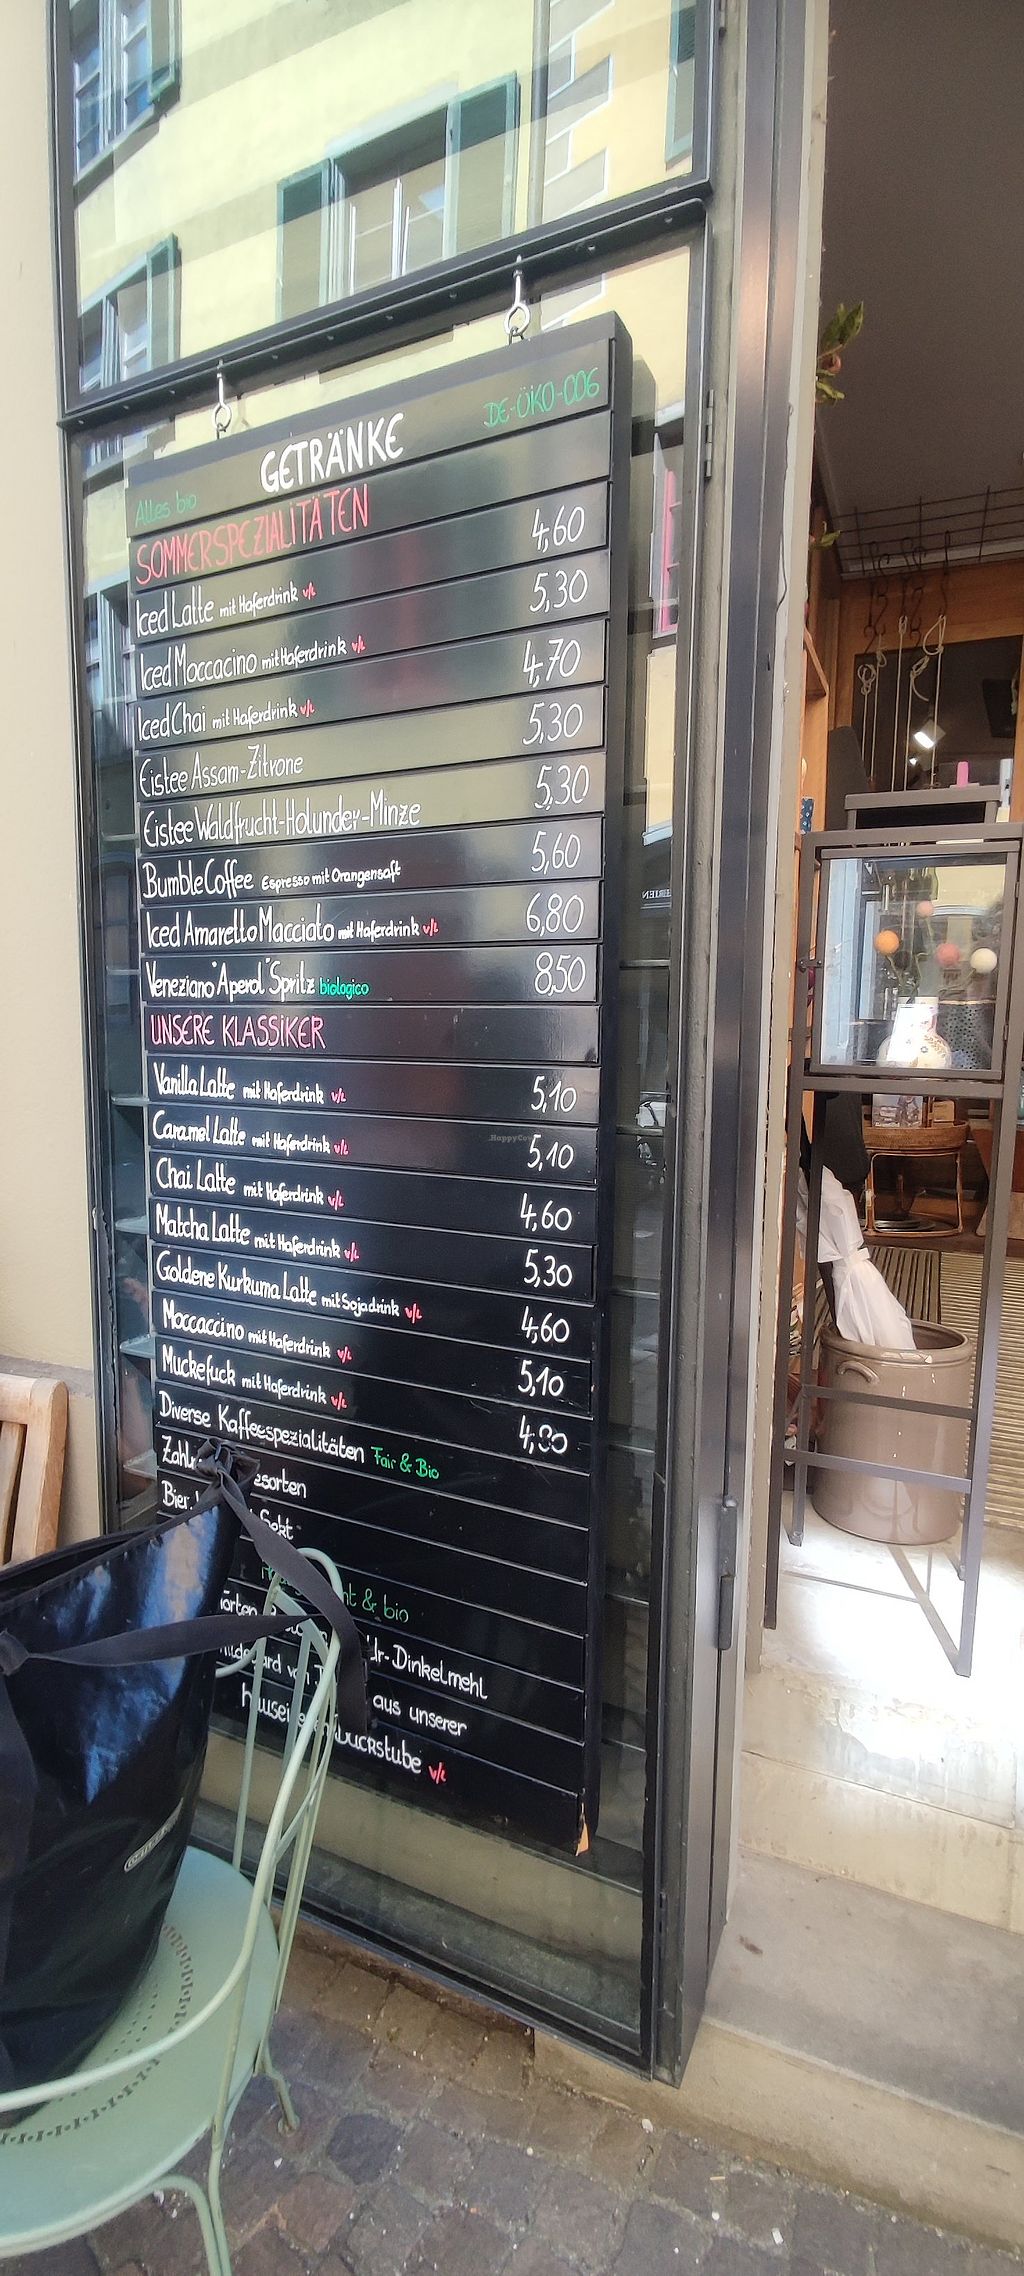 GETRÄNKE DE-ÖKO-006
Alles bio
SOMMERSPEZIALITÄTEN
Iced Latte mit Haferdrink v/L 4,60
Iced Moccacino mit Haferdrink v/L 5,30
Iced Chai mit Haferdrink v/L 4,70
Eistee Assam-Zitrone 5,30
Eistee Waldfrucht-Holunder-Minze 5,30
Bumble Coffee Espresso mit Orangensaft 5,60
Iced Amaretto Macciato mit Haferdrink v/L 6,80
Veneziano "Aperol" Spritz biologico 8,50
UNSERE KLASSIKER
Vanilla Latte mit Haferdrink v/L 5,10
Caramel Latte mit Haferdrink v/L 5,10
Chai Latte mit Haferdrink v/L 4,60
Matcha Latte mit Haferdrink v/L 5,30
Goldene Kurkuma Latte mit Sojadrink v/L 4,60
Moccaccino mit Haferdrink v/L 5,10
Muckefuck mit Haferdrink v/L
Diverse Kaffeespezialitäten Fair & Bio
Sekt
& bio
Dinkelmehl
aus unserer
v/L
HappyCow